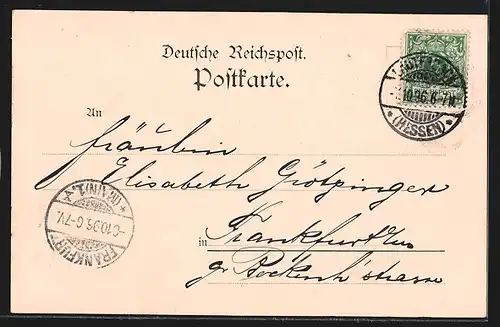 Deutsche Reichspost.
Postkarte.
(HESSEN)
10.96.6-7N
An
Fräulein
Elisabeth Götzinger
in Frankfurt a/m
gr Bockenh'strasse
FRANKFURT
(MAIN) 1.
10.96.6-7V.